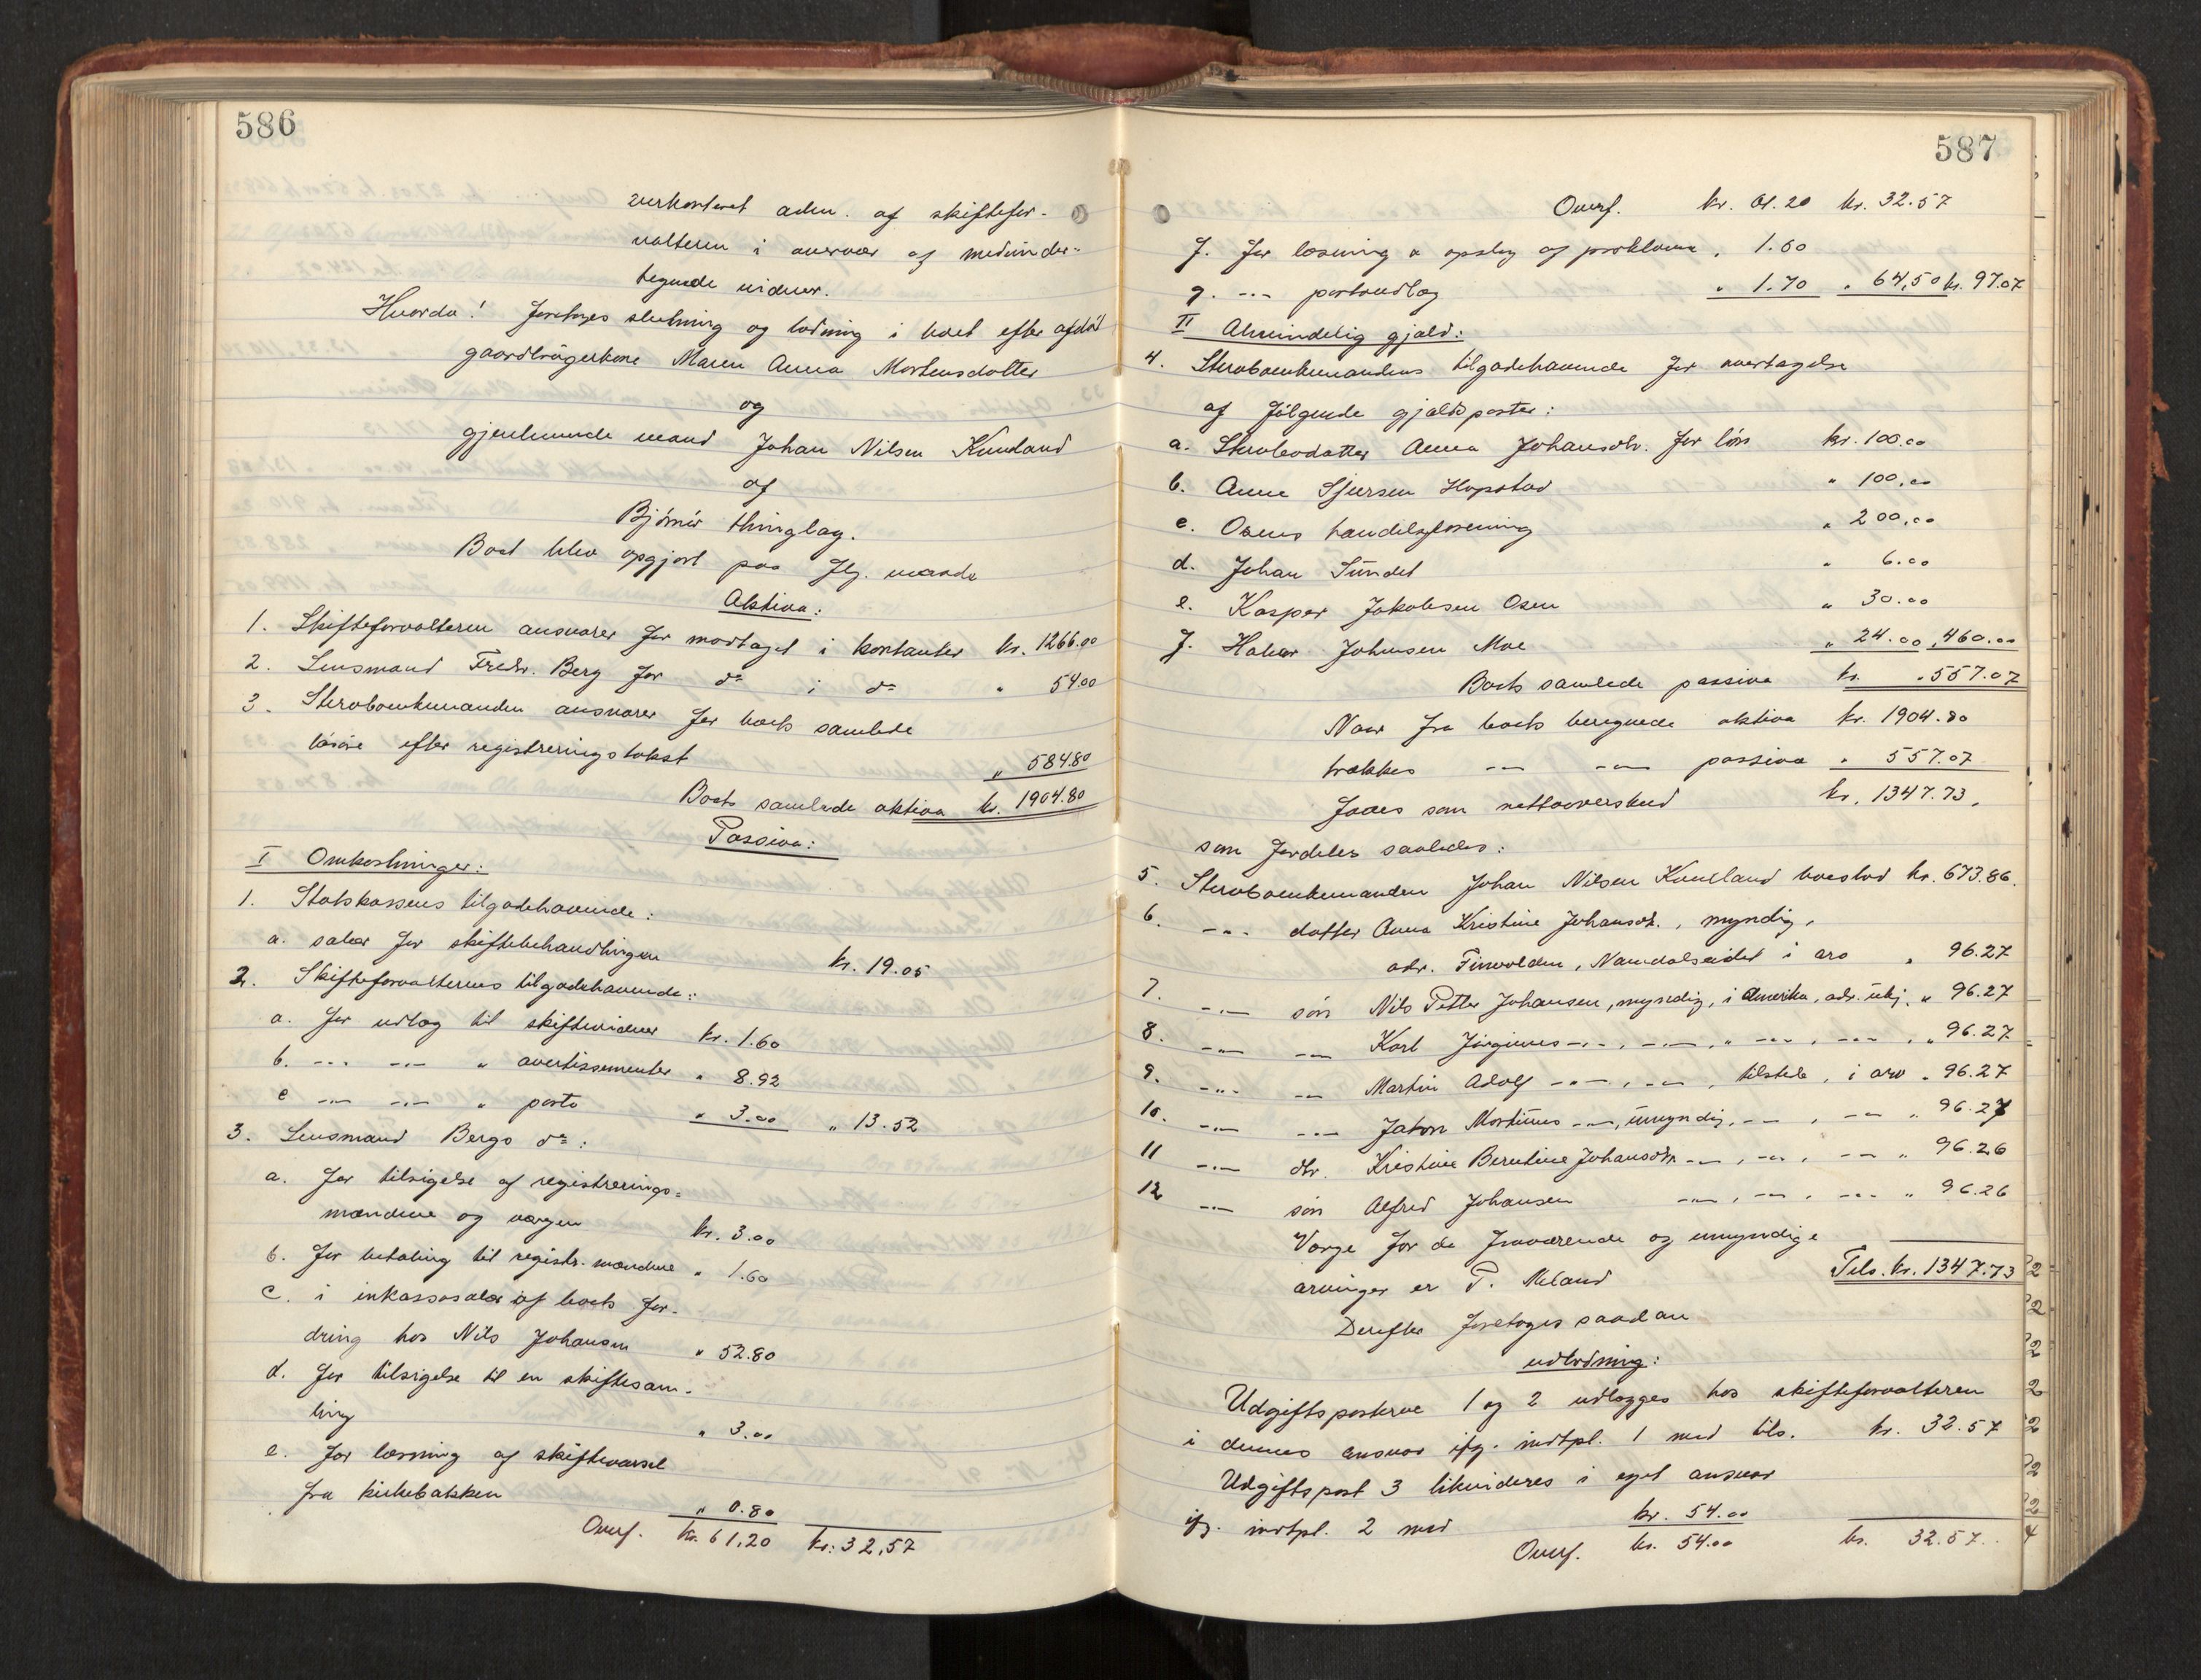 586
verkontoret adm. af skiftefor-
valteren i overvær af medunder-
tegnede vidner.
Hvorda! foretages slutning og lodning i boet efter afdöd
gaardbrugerkone Maren Anna Mortensdatter
og
gjenlevende mand Johan Nilsen Kvarland
af
Bjørnør thinglag.
Boet blev opgjort paa flg. maade
Aktiva:
1. Skifteforvalteren ansvarer for modtaget i kontanter kr. 1266.00
2. Lensmand Fredr. Berg for do i do " 54.00
3. Sterboenkemanden ansvarer for boets samlede
løsøre efter registreringstakst " 584.80
Boets samlede aktiva kr. 1904.80
Passiva:
I Omkostninger:
1. Statskassens tilgodehavende:
a. salær for skiftebehandlingen kr. 19.05
2. Skifteforvalterens tilgodehavende:
a. for udlæg til skiftevidner kr. 1.60
b. -"- -"- " avertissementer " 8.92
c -"- -"- " porto " 3.00 " 13.52
3. Lensmand Bergs do:
a. for tilsigelse af registrerings-
mændene og værgen kr. 3.00
b. for betaling til registr. mændene " 1.60
c. i inkassosalær af boets for-
dring hos Nils Johansen " 52.80
d. for tilsigelse til en skiftesam-
ling " 3.00
e. for læsning af skiftevarsel
fra kirkebakken " 0.80
Overf. kr. 61,20 kr: 32,57
587
Overf. kr. 61.20 kr. 32.57
f. for læsning & opslag af proklama " 1.60
g. -"- portoudlæg " 1.70 " 64,50 kr. 97.07
II Almindelig gjæld:
4. Sterboenkemandens tilgodehavende for overtagelse
af følgende gjældsposter:
a. Sterbodatter Anna Johansdtr. for løn kr. 100.00
b. Anne Sjursen Hopstad " 100,00
c. Osens handelsforening " 200,00
d. Johan Sundet " 6.00
e. Kasper Jakobsen Osen " 30.00
f. Halvor Johnsen Moe " 24.00, 460.00
Boets samlede passiva kr. 557.07
Naar fra boets beregnede aktiva kr. 1904.80
trækkes -"- -"- passiva " 557.07
faaes som nettooverskud kr. 1347.73,
som fordeles saaledes:
5. Sterboenkemanden Johan Nilsen Kvarland boeslod kr. 673.86.
6. -"- datter Anna Kristine Johansdt., myndig,
adr. Finvolden, Namdalseidet i arv " 96.27
7. -"- søn Nils Petter Johansen, myndig, i Amerika, adr. ubj. " 96.27
8. -"- -"- Karl Jörginus -"-, -"-, " -"-, -"-, " 96.27
9. -"- -"- Martin Adolf -"-, -"-, tilstede, i arv " 96.27
10. -"- -"- Jakon Mortinus -"-, umyndig, -"-, -"- " 96.27
11 -"- dtr. Kristine Berntine Johansdtr. -"-, -"-, -"- " 96.26
12 -"- søn Alfred Johansen -"-, -"-, -"- " 96.26
Værge for de fraværende og umyndige
arvinger er P. Meland Tils. kr. 1347.73
Derefter foretoges saadan
udlodning:
Udgiftsposterne 1 og 2 udlægges hos skifteforvalteren
i dennes ansvar ifg. indtpl. 1 med tils. kr. 32.57
Udgiftspost 3 likvideres i eget ansvar
ifg. indtpl. 2 med kr. 54.00
Overf. kr. 54.00 kr. 32.57.